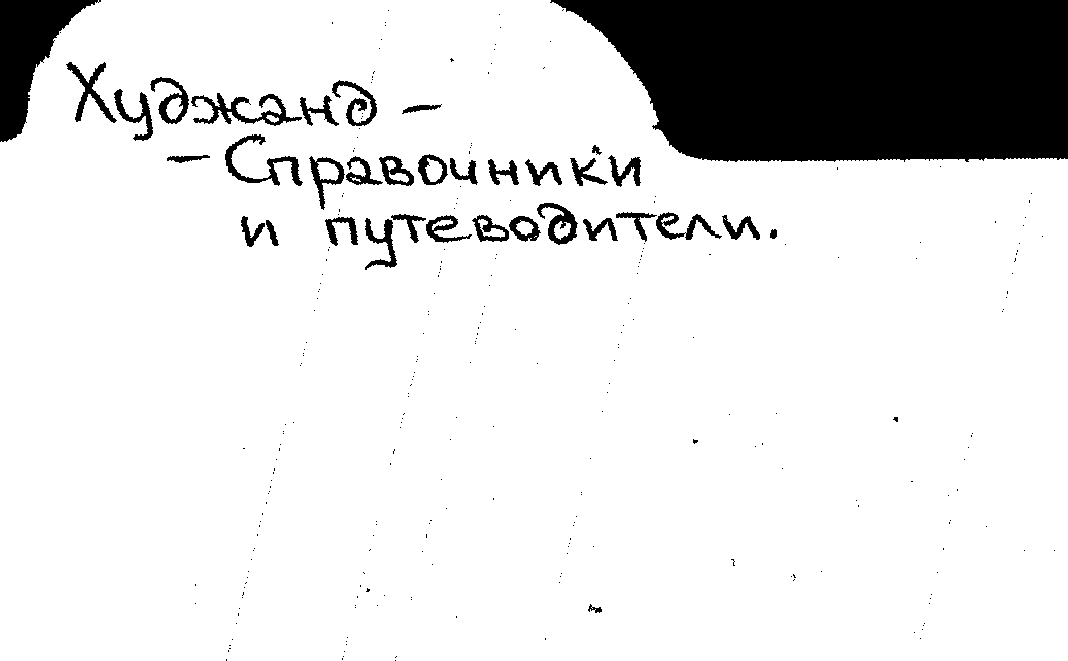 Худжанд –
– Справочники
и путеводители.